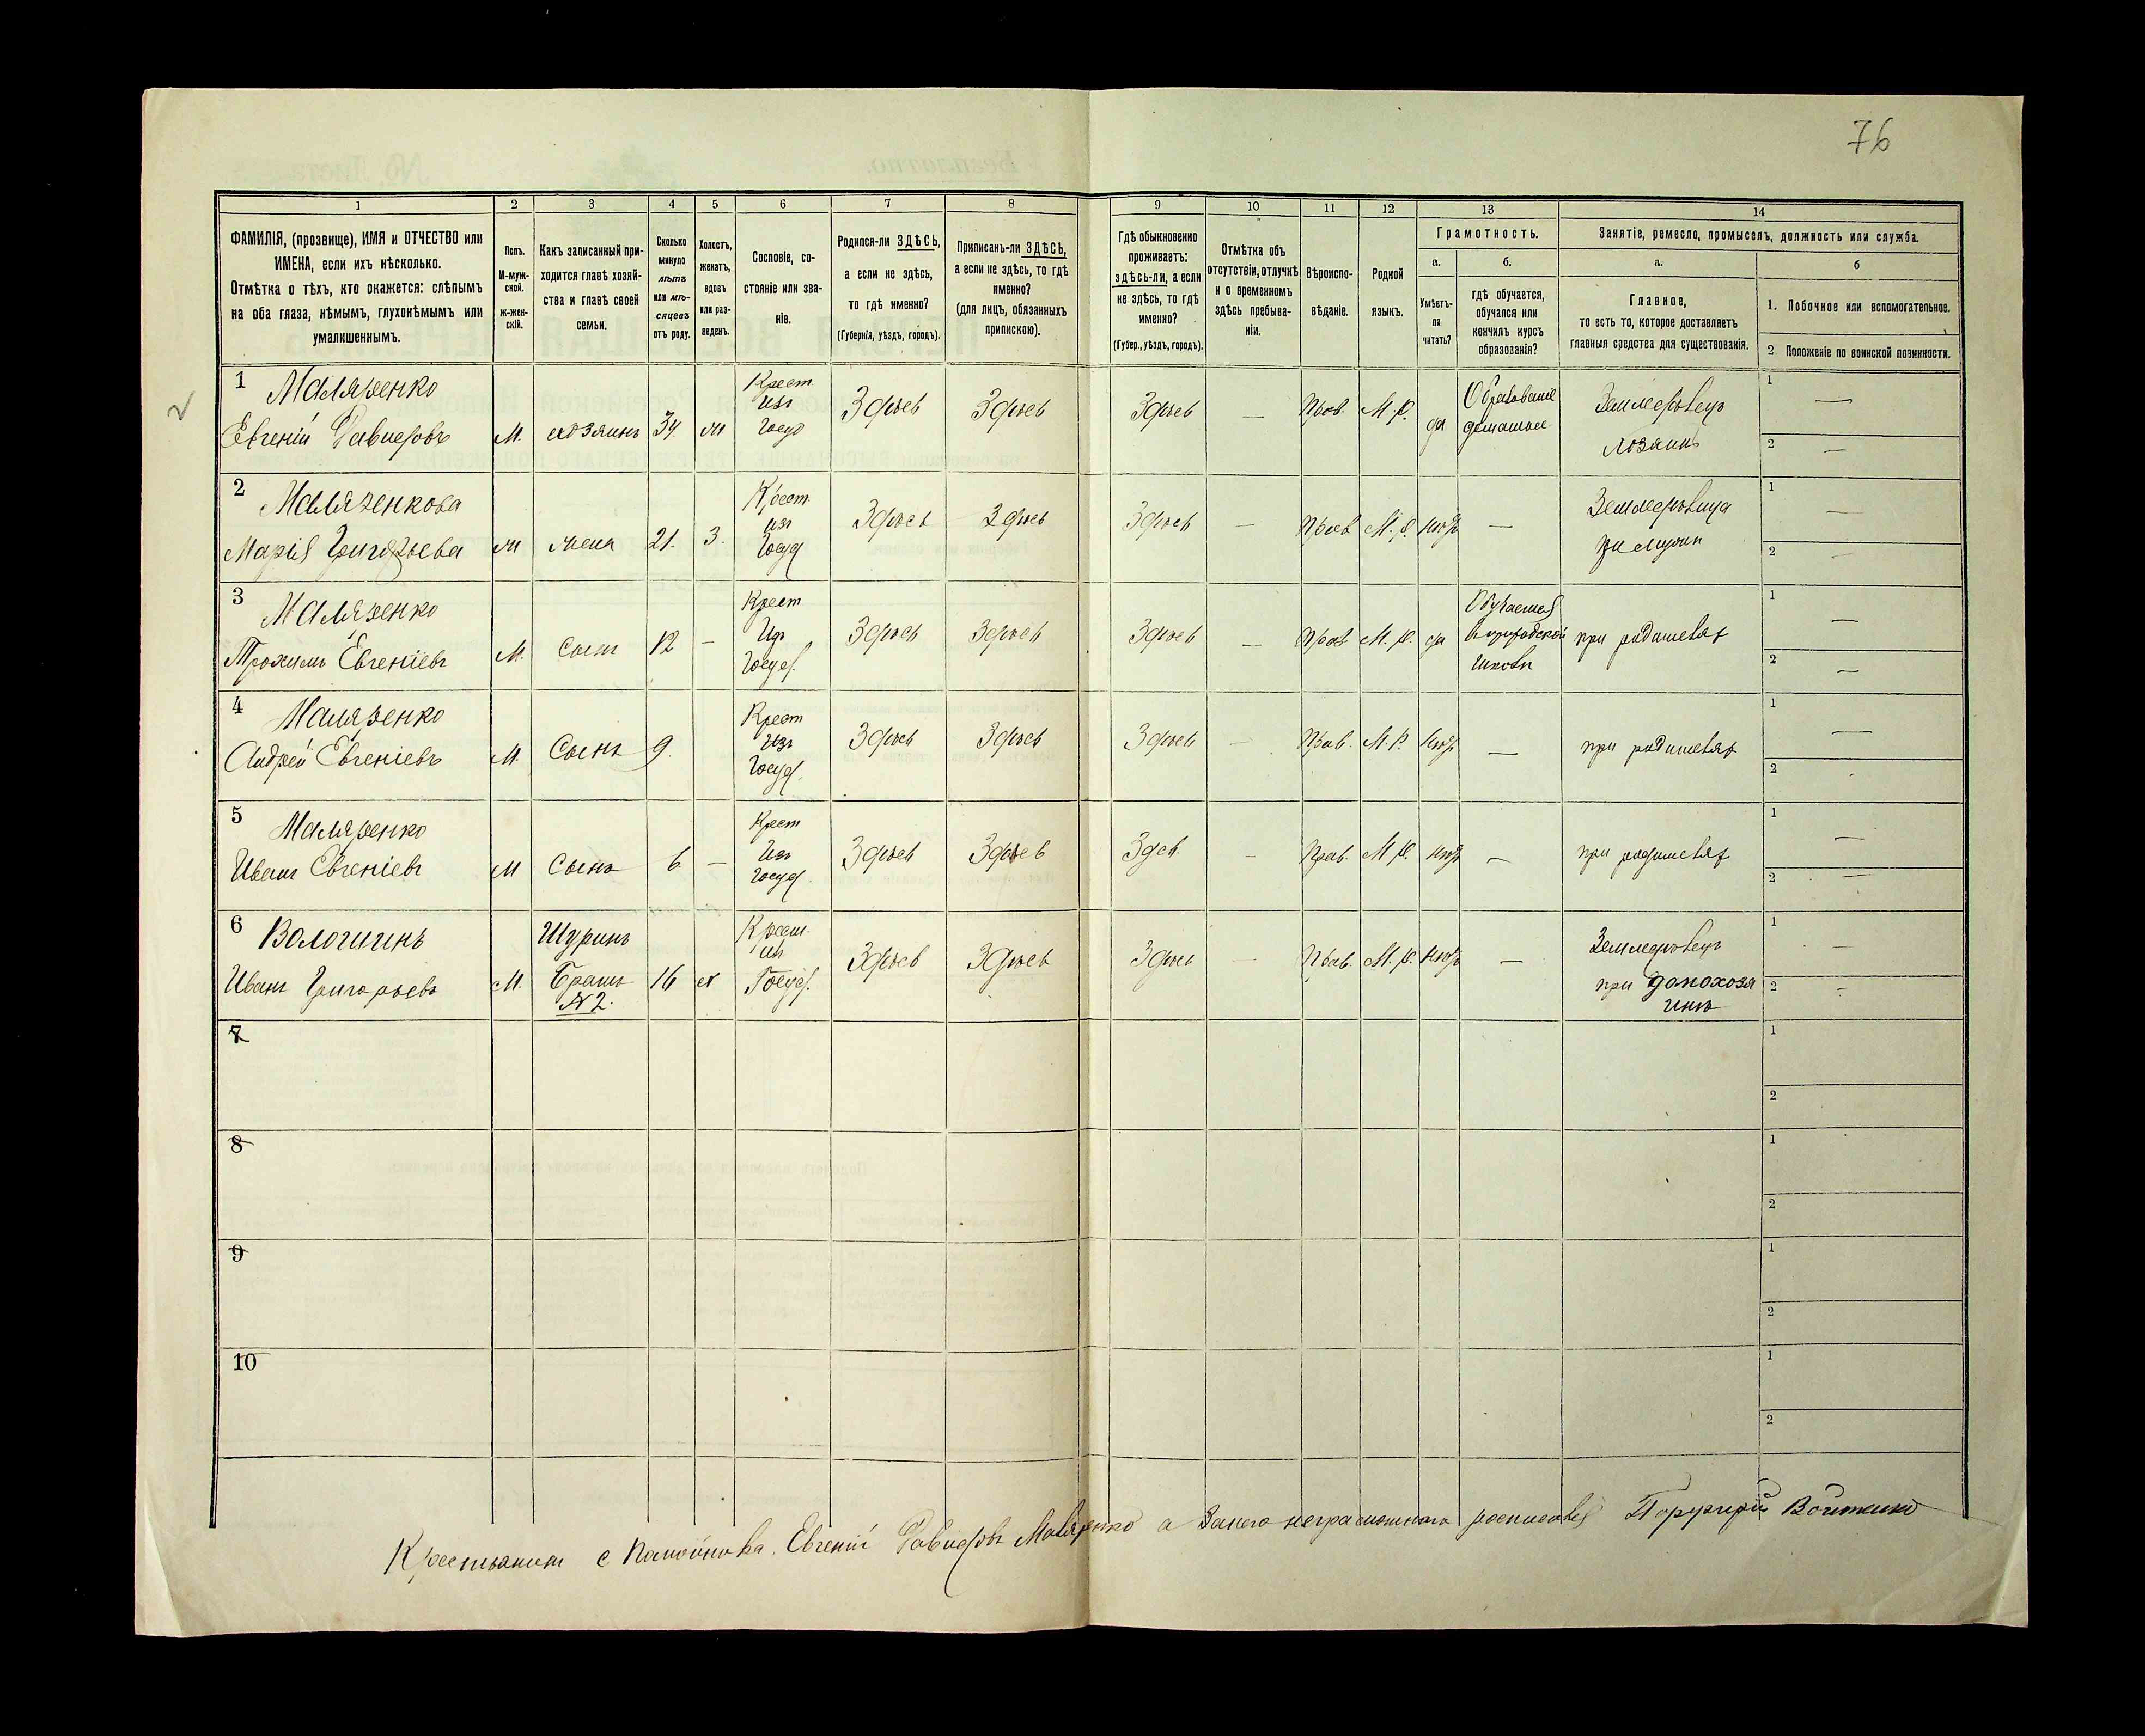 76
1 2 3 4 5 6 7 8 9 10 11 12 13 14
ФАМИЛІЯ, (прозвище), ИМЯ и ОТЧЕСТВО или
ИМЕНА, если ихъ нѣсколько.
Отмѣтка о тѣхъ, кто окажется: слѣпымъ
на оба глаза, нѣмымъ, глухонѣмымъ или
умалишеннымъ.
Полъ.
М-муж-
ской.
Ж-жен-
скій.
Какъ записанный при-
ходится главѣ хозяй-
ства и главѣ своей
семьи.
Сколько
минуло
лѣтъ
или мѣ-
сяцевъ
отъ роду.
Холостъ,
женатъ,
вдовъ
или раз-
веденъ.
Сословіе, со-
стояніе или зва-
ніе.
Родился-ли ЗДѢСЬ,
а если не здѣсь,
то гдѣ именно?
(Губернія, уѣздъ, городъ).
Приписанъ-ли ЗДѢСЬ,
а если не здѣсь, то гдѣ
именно?
(для лицъ, обязанныхъ
припискою).
Гдѣ обыкновенно
проживаетъ:
здѣсь-ли, а если
не здѣсь, то гдѣ
именно?
(Губер., уѣздъ, городъ).
Отмѣтка объ
отсутствіи, отлучкѣ
и о временномъ
здѣсь пребыва-
ніи.
Вѣроиспо-
вѣданіе.
Родной
языкъ.
Грамотность.
а.
Умѣетъ-
ли
читать?
б.
гдѣ обучается,
обучался или
кончилъ курсъ
образованія?
Занятіе, ремесло, промыселъ, должность или служба.
а.
Главное,
то есть то, которое доставляетъ
главныя средства для существованія.
б
1. Побочное или вспомогательное.
2 Положеніе по воинской повинности.
1 Маляренко Крест.
изъ
Госуд
Евгеній М. хозяинъ 34. ж Здѣсь Здѣсь Здѣсь — Прав. М.р. да Образованіе
домашнее
Земледѣлецъ
хозяинъ
1 —
2 —
2 Маляренкова Крест.
изъ
Госуд
Марія Григорьева ж жена 21. З. Здѣсь Здѣсь Здѣсь — Прав. М.р. нѣтъ — Земледѣлица
при мужѣ
1 —
2 —
3 Маляренко Крест
Изъ
Госуд.
Трохимъ Евгеніевъ М. Сынъ 12 — Здѣсь Здѣсь Здѣсь — Прав. М.р. да Обучается
школѣ
при родителяхъ
1 —
2 —
4 Маляренко Крест
Изъ
Госуд.
Андрей Евгеніевъ М. Сынъ 9. Здѣсь Здѣсь Здѣсь — Прав. М.р. Нѣтъ — при родителяхъ
1 —
2
5 Маляренко Крест
Изъ
Госуд.
Иванъ Евгеніевъ М Сынъ 6 — Здѣсь Здѣсь Здѣсь — Прав. М.р. нѣтъ — при родителяхъ
1 —
2 —
6 Шуринъ Крест.
изъ
Госуд.
Иванъ Григорьевъ М. Братъ 16 х Здѣсь Здѣсь Здѣсь — Прав. М.р. Нѣтъ — Земледѣлецъ
№ 2.
при домохозя
инѣ
1 —
2 —
7
1
2
8
1
2
9
1
2
10
1
2
Крестьянинъ с. Евгеній Маляренко а за него неграмотнаго росписался Войтенко